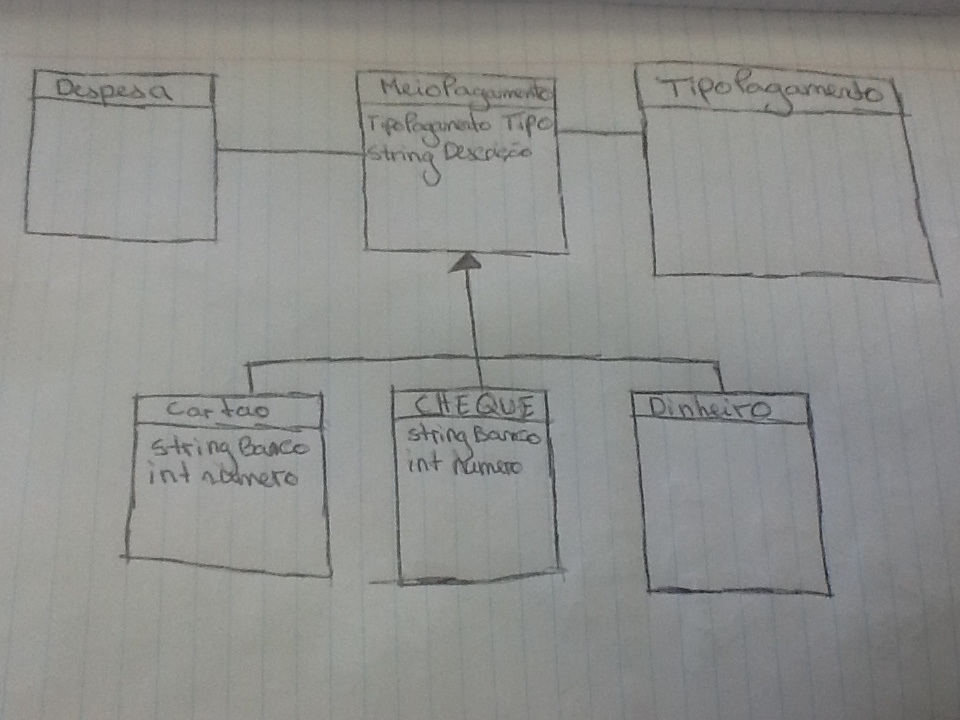 Despesa
MeioPagamento
TipoPagamento Tipo
string Descrição
TipoPagamento
Cartao
string Banco
int número
CHEQUE
string Banco
int número
Dinheiro